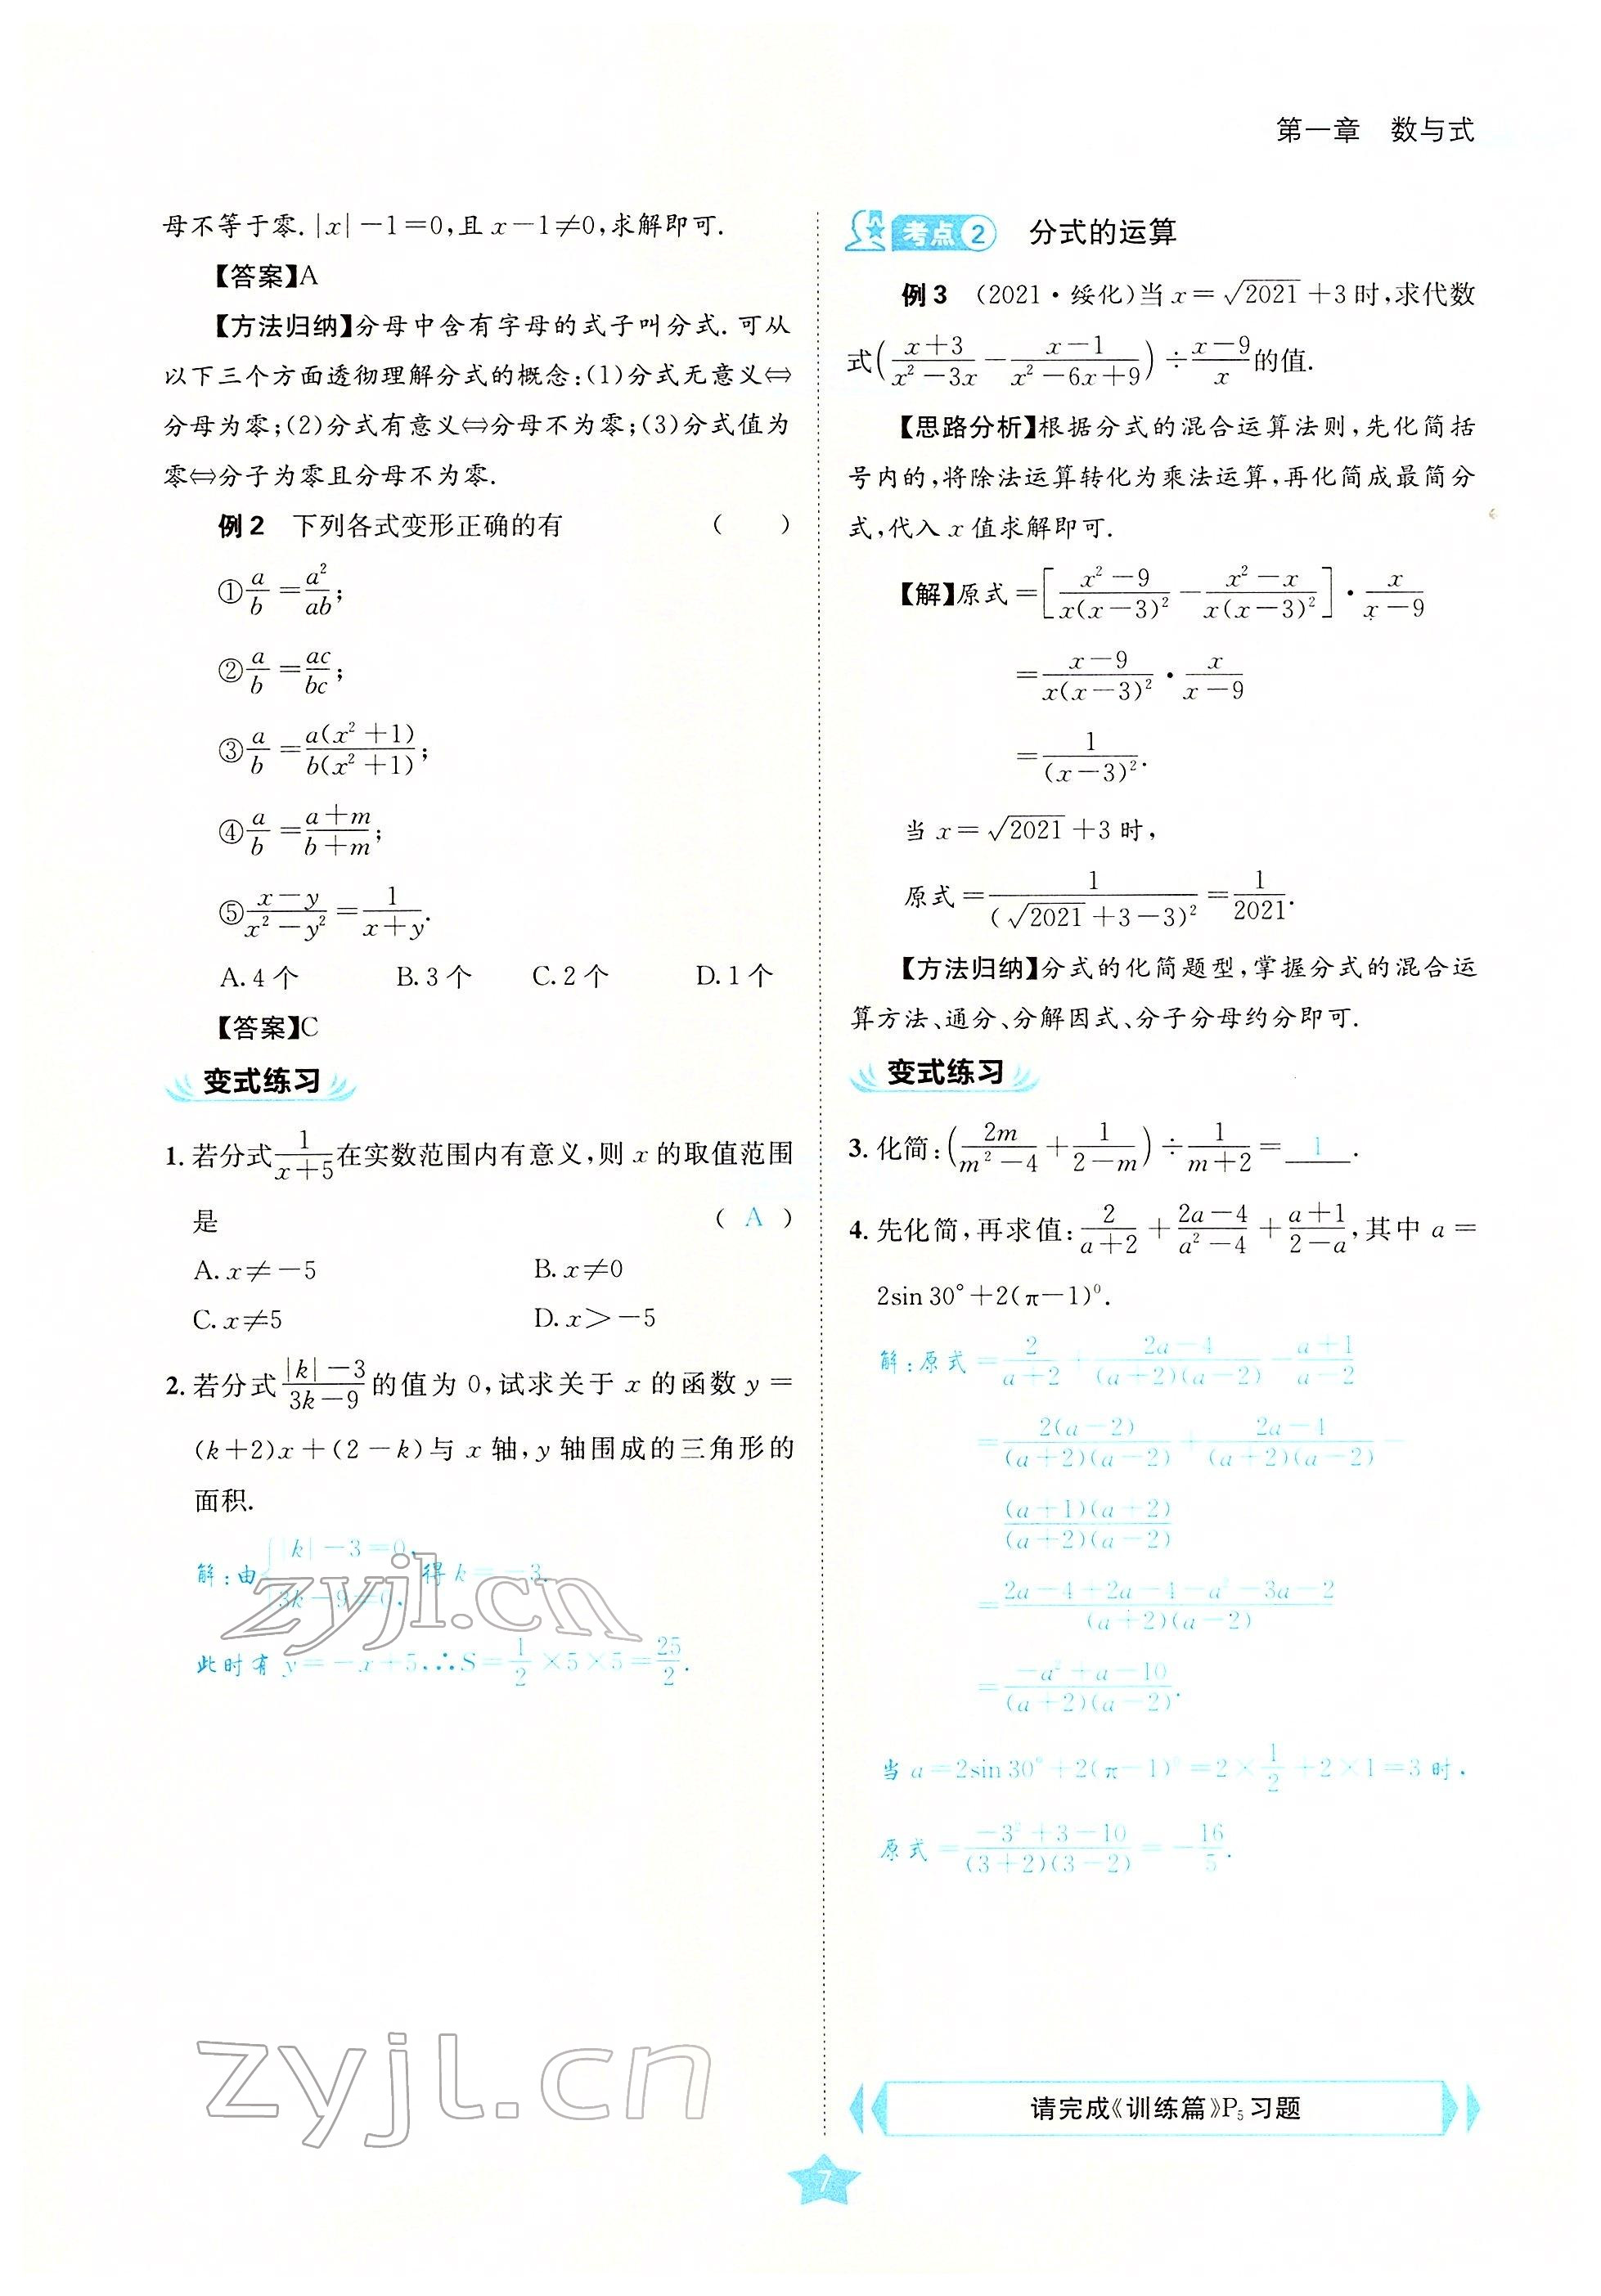 第一章 数与式
母不等于零.|x|-1=0,且 x-1≠0,求解即可.
【答案】A
【方法归纳】分母中含有字母的式子叫分式.可从
以下三个方面透彻理解分式的概念:(1)分式无意义⇔
分母为零;(2)分式有意义⇔分母不为零;(3)分式值为
零⇔分子为零且分母不为零.
例2 下列各式变形正确的有 ( )
①a/b=a²/ab;
②a/b=ac/bc;
③a/b=a(x²+1)/b(x²+1);
④a/b=(a+m)/(b+m);
⑤(x-y)/(x²-y²)=1/(x+y).
A.4个 B.3个 C.2个 D.1个
【答案】C
变式练习
1.若分式1/(x+5)在实数范围内有意义,则 x 的取值范围
是 ( A )
A.x≠-5 B.x≠0
C.x≠5 D.x>-5
2.若分式(|k|-3)/(3k-9)的值为 0,试求关于 x 的函数 y=
(k+2)x+(2-k)与 x 轴,y 轴围成的三角形的
面积.
解:由{|k|-3=0, 3k-9≠0, 得 k=-3.
此时有 y=-x+5.∴S=1/2×5×5=25/2.
考点2 分式的运算
例3 (2021·绥化)当 x=√2021+3 时,求代数
式((x+3)/(x²-3x)-(x-1)/(x²-6x+9))÷(x-9)/x的值.
【思路分析】根据分式的混合运算法则,先化简括
号内的,将除法运算转化为乘法运算,再化简成最简分
式,代入 x 值求解即可.
【解】原式=[(x²-9)/x(x-3)²-(x²-x)/x(x-3)²]·x/(x-9)
=(x-9)/x(x-3)²·x/(x-9)
=1/(x-3)².
当 x=√2021+3 时,
原式=1/(√2021+3-3)²=1/2021.
【方法归纳】分式的化简题型,掌握分式的混合运
算方法、通分、分解因式、分子分母约分即可.
变式练习
3.化简:(2m/(m²-4)+1/(2-m))÷1/(m+2)=1.
4.先化简,再求值:2/(a+2)+(2a-4)/(a²-4)+(a+1)/(2-a),其中 a=
2sin 30°+2(π-1)⁰.
解:原式=2/(a+2)+(2a-4)/(a+2)(a-2)-(a+1)/(a-2)
=2(a-2)/(a+2)(a-2)+(2a-4)/(a+2)(a-2)-
(a+1)(a+2)/(a+2)(a-2)
=(2a-4+2a-4-a²-3a-2)/(a+2)(a-2)
=(-a²+a-10)/(a+2)(a-2).
当 a=2sin 30°+2(π-1)⁰=2×1/2+2×1=3 时,
原式=(-3²+3-10)/(3+2)(3-2)=-16/5.
请完成《训练篇》P₅ 习题
7
zyjl.cn
zyjl.cn